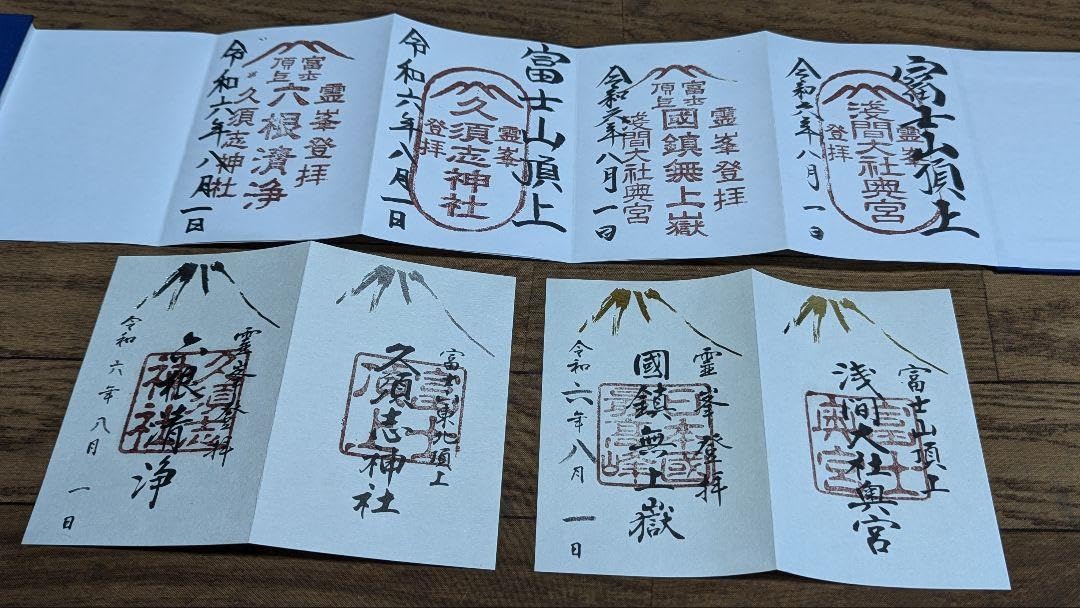 富士山頂上
霊峯登拝
淺間大社奥宮
令和六年八月一日
霊峯登拝
富士頂上
國鎮無上嶽
淺間大社奥宮
令和六年八月一日
富士山頂上
霊峯登拝
久須志神社
令和六年八月一日
霊峯登拝
富士頂上
六根清浄
久須志神社
令和六年八月一日
富士山頂上
淺間大社奥宮
霊峰登拝
國鎮無上嶽
令和六年八月一日
富士山東北頂上
久須志神社
霊峯登拝
六根清浄
令和六年八月一日